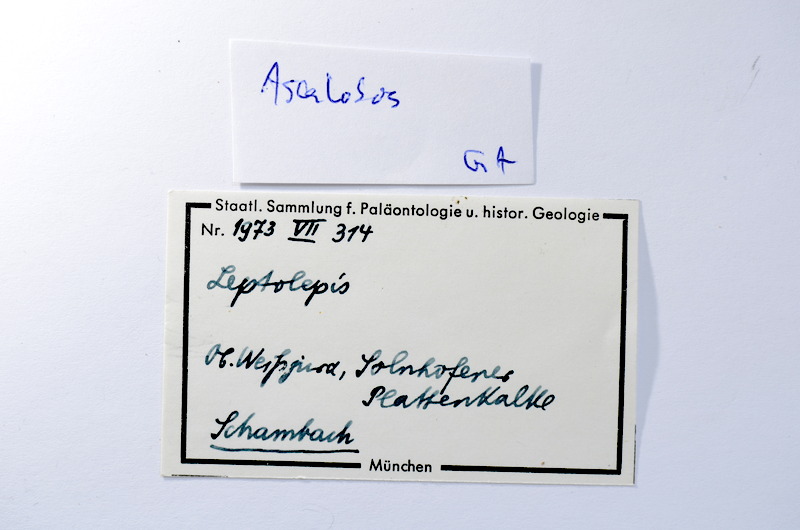 Ascalobos
GA
Staatl. Sammlung f. Paläontologie u. histor. Geologie
Nr. 1973 VII 314
Leptolepis
Ob. Weißjura, Solnhofener
Plattenkalke
Schambach
München